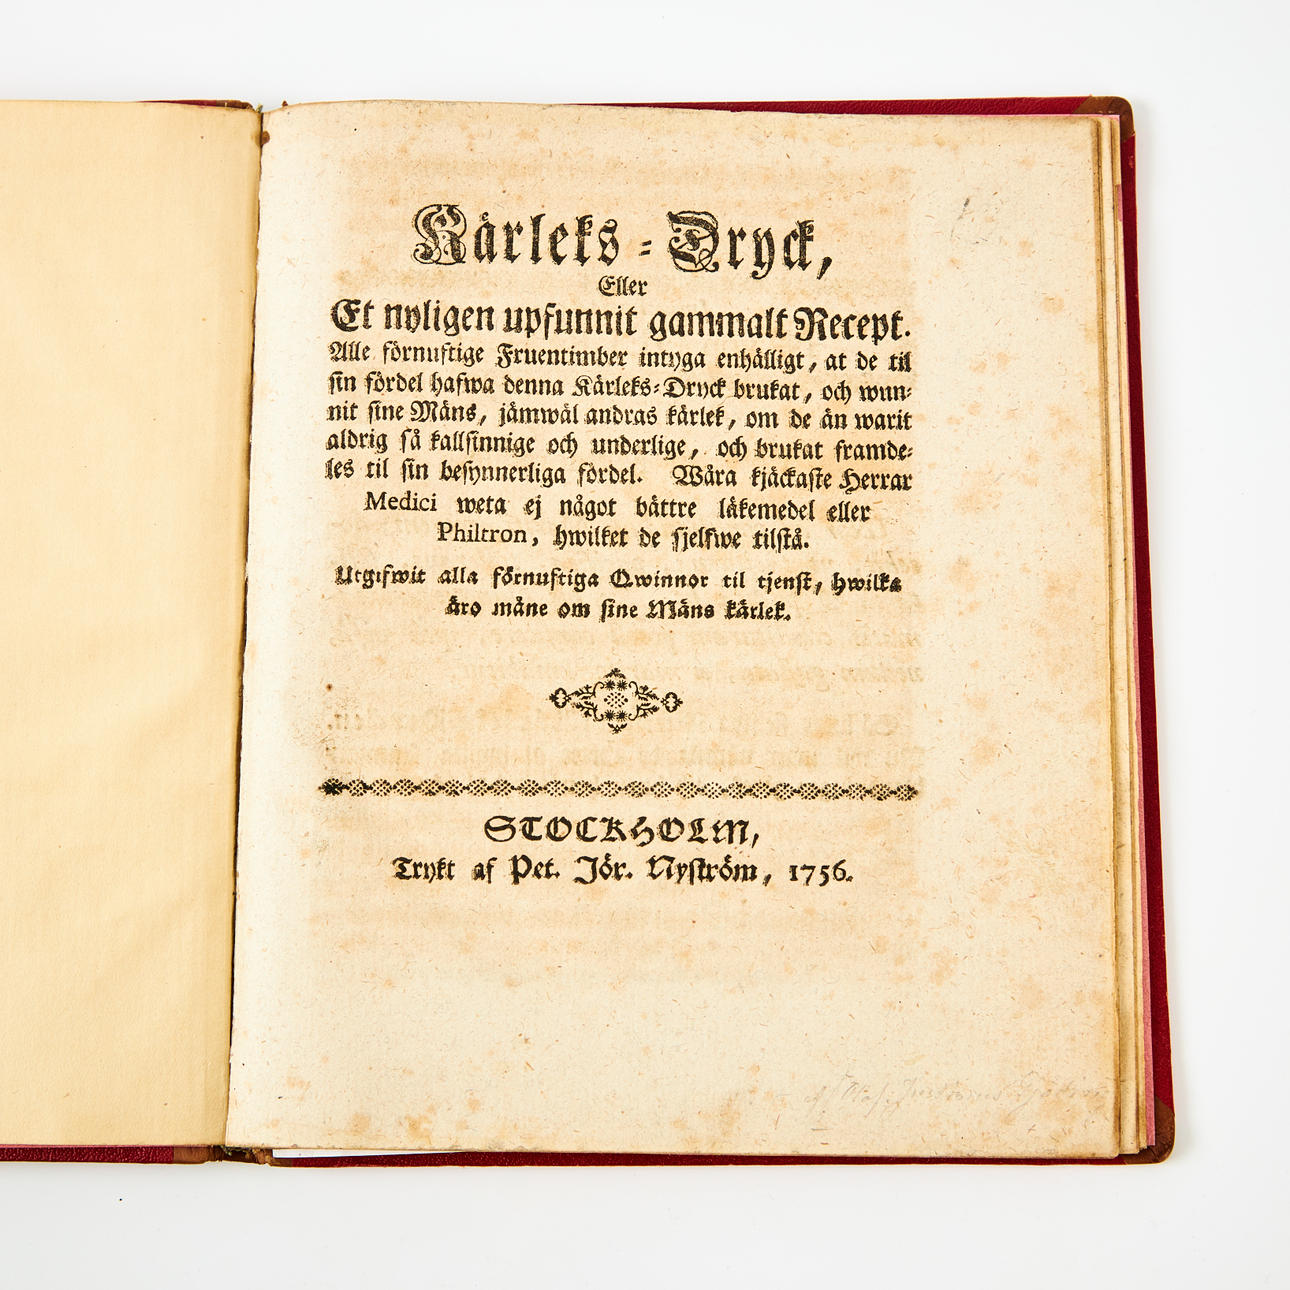 Kärleks-Dryck,
Eller
Et nyligen upfunnit gammalt Recept.
Alle förnuftige Fruentimber intyga enhälligt, at de til
sin fördel hafwa denna Kärleks-Dryck brukat, och wun-
nit sine Mäns, jämwäl andras kärlek, om de än warit
aldrig så kallsinnige och underlige, och brukat framde-
les til sin besynnerliga fördel. Wåra kjäckaste Herrar
Medici weta ej något bättre läkemedel eller
Philtron, hwilket de sjelfwe tilstå.
Utgifwit alla förnuftiga Qwinnor til tjenst, hwilka
äro måne om sine Mäns kärlek.
STOCKHOLM,
Trykt af Pet. Jör. Nyström, 1756.
af Olof